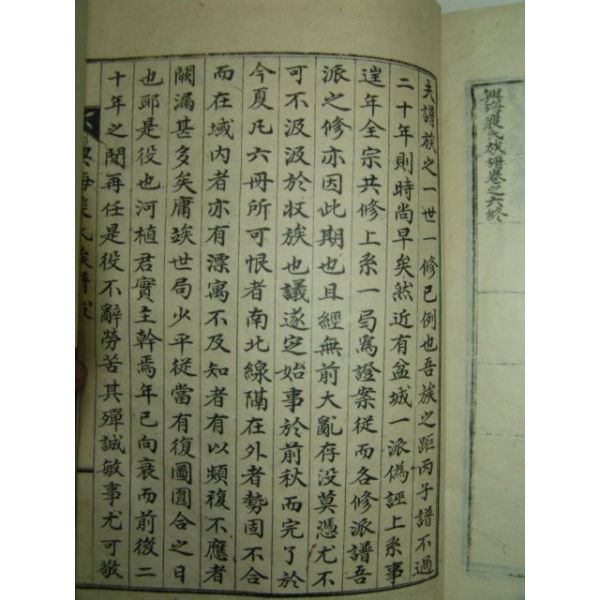 興海裵氏族譜卷之六終
夫譜族之一世一修已例也吾族之距丙子譜不過
二十年則時尚早矣然近有盆城一派僞誣上系事
逞年全宗共修上系一局寫證案從而各修派譜吾
派之修亦因此期也且經無前大亂存没莫憑尤不
可不汲汲於收族也議遂定始事於前秋而完了於
今夏凡六冊所可恨者南北線隔在外者勢固不合
而在域内者亦有漂寓不及知者有以頻復不應者
闕漏甚多矣庸竢世局少平從當有復圖圓合之日
也耶是役也河植君實主幹焉年已向衰而前後二
十年之間再任是役不辭勞苦其殫誠敏事尤可敬